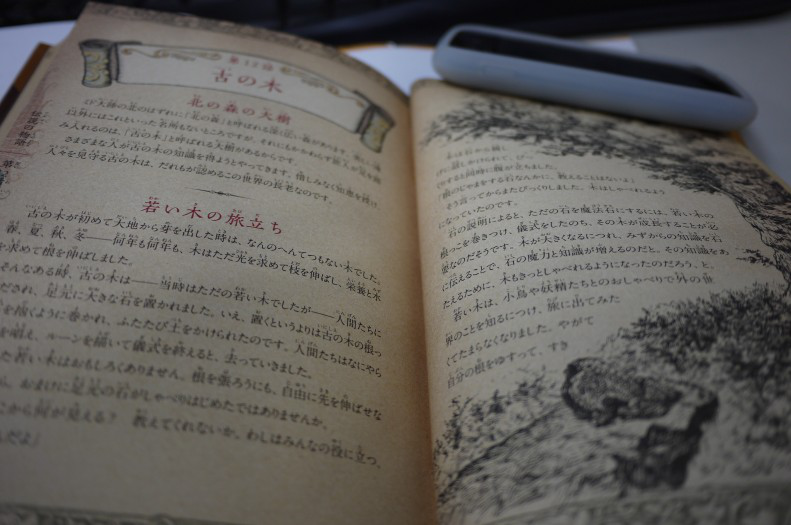 第12話
古の木
北の森の大樹
「北の森」と呼ばれる深い
以外にはこれといった名所もないところですが、それにもかかわらず旅人が足を踏
み入れるのは、「古の木」と呼ばれる大樹があるからです。
さまざまな人が古の木の知識を得ようとやってきます。惜しみなく知恵を授け
人々を見守る古の木は、だれもが認めるこの世界の長老なのです。
若い木の旅立ち
古の木が初めて大地から芽を出した時は、なんのへんてつもない木でした。
春、夏、秋、冬――何年も何年も、木はただ光を求めて枝を伸ばし、栄養と水
を求めて根を伸ばしました。
そんなある時、古の木は――当時はただの若い木でしたが――人間たちに
だされ、足元に大きな石を置かれました。いえ、置くというよりは古の木の根っ
を描くように巻かれ、ふたたび土をかけられたのです。人間たちはなにやら
を唱え、ルーンを描いて儀式を終えると、去っていきました。
た若い木はおもしろくありません。根を張ろうにも、自由に先を伸ばせな
ら、おまけに足元の石がしゃべりはじめたではありませんか。
だから何が見える? 教えてくれないか。わしはみんなの役に立つ、
んだよ」
と同時に腹が立ちました。
「根のじゃまをする石なんかに、教えることはないよ」
そう言ってからまたびっくりしました。木はしゃべれるよう
になっていたのです。
石の説明によると、ただの石を魔法石にするには、若い木の
根っこを巻きつけ、儀式をしたのち、その木が成長することが必
要なのだそうです。木が大きくなるにつれ、みずからの知識を石
に伝えることで、石の魔力と知識が増えるのだと。その知識をあ
たえるために、木もきっとしゃべれるようになったのだろう、と。
若い木は、小鳥や妖精たちとのおしゃべりで外の世
界のことを知るにつけ、旅に出てみた
くてたまらなくなりました。やがて
自分の根をゆすって、すき